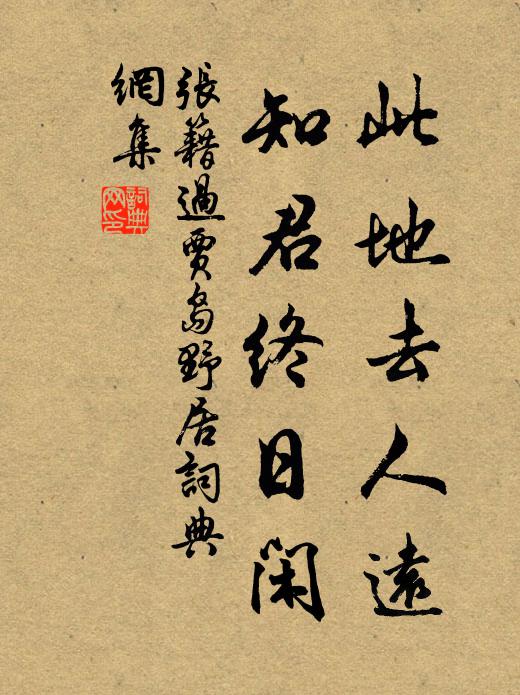 此地去人遠
知君終日閑
張籍過賈島野居詞典
網集
詞典
网印